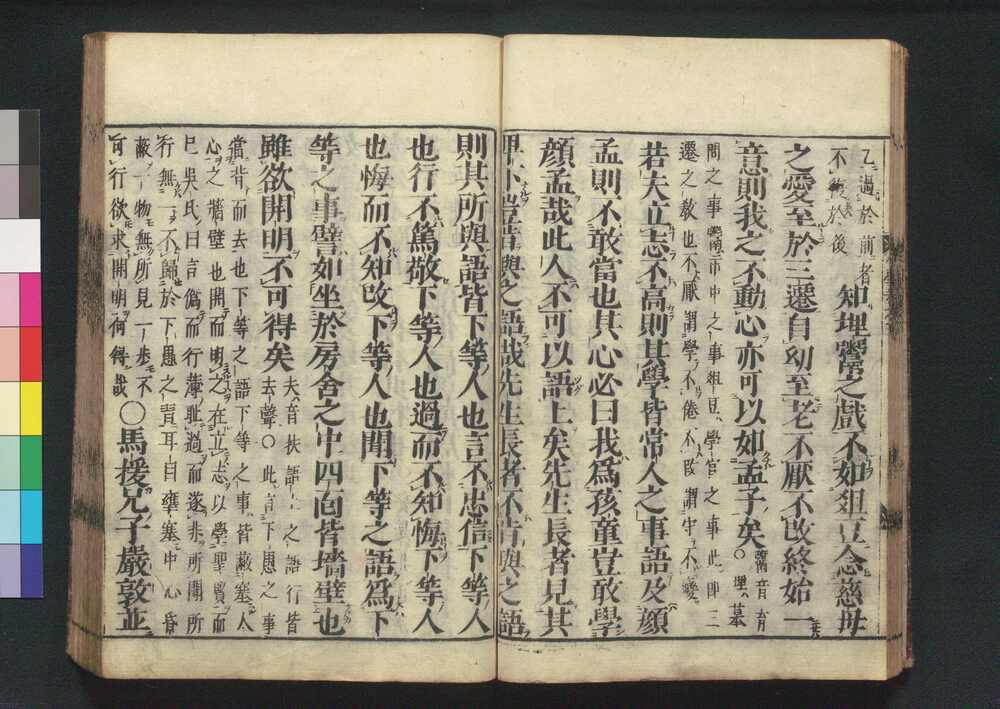 之過於前者
不終於後
知埋鬻之戲不如俎豆念慈母
之愛至於三遷自幼至老不厭不改終始一
意則我之不動心亦可以如孟子矣
○鬻音育
埋墓
間之事鬻市中之事俎豆學官之事此即三
遷之敎也不厭謂學不倦不改謂守不變
若夫立志不高則其學皆常人之事語及顏
孟則不敢當也其心必曰我爲孩童豈敢學
顏孟哉此人不可以語上矣先生長者見其
卑下豈肯與之語哉先生長者不肯與之語
則其所與語皆下等人也言不忠信下等人
也行不篤敬下等人也過而不知悔下等人
也悔而不知改下等人也聞下等之語爲下
等之事譬如坐於房舍之中四面皆墻壁也
雖欲開明不可得矣
夫音扶語上之語行皆
去聲○此言下愚之事
當背而去也下等之語下等之事皆蔽塞人
心之牆壁也開而明之在立志以學聖賢而
已吳氏曰言僞而行薄恥過而遂非所聞所
行無一不歸於下愚之耳目壅塞中心昏
蔽一物無所見一步不
可行欲求開明何得哉
○馬援兄子嚴敦並